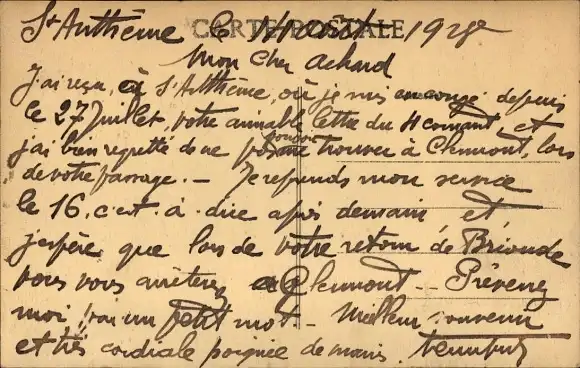 St Anthème le 14 Août 1928
CARTE POSTALE
Mon cher Achard
J'ai reçu, à St Anthème, où je suis en congé depuis
le 27 Juillet, votre aimable lettre du 4 courant, et
j'ai bien regretté de ne pas pouvoir trouver à Clermont, lors
de votre passage. - Je reprends mon service
le 16, c'est à dire après demain et
j'espère que lors de votre retour de Brioude
vous vous arrêterez à Clermont - Prévenez
moi par un petit mot - Meilleur souvenir
et très cordiale poignée de mains.